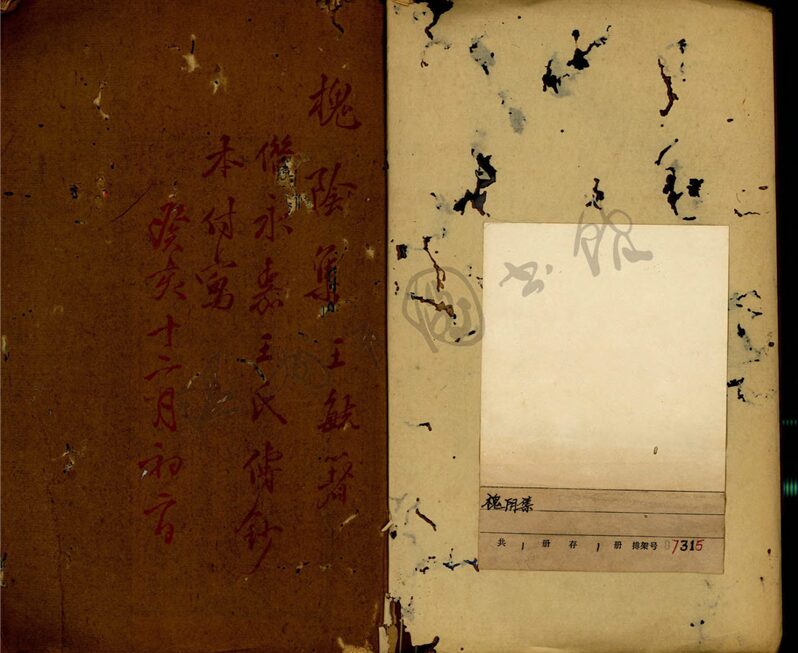 槐陰集 王毓著
借永嘉王氏傳鈔
本付寫
癸亥十二月初二日
書館
槐阴集
共 1 册 存 1 册 排架号 07315